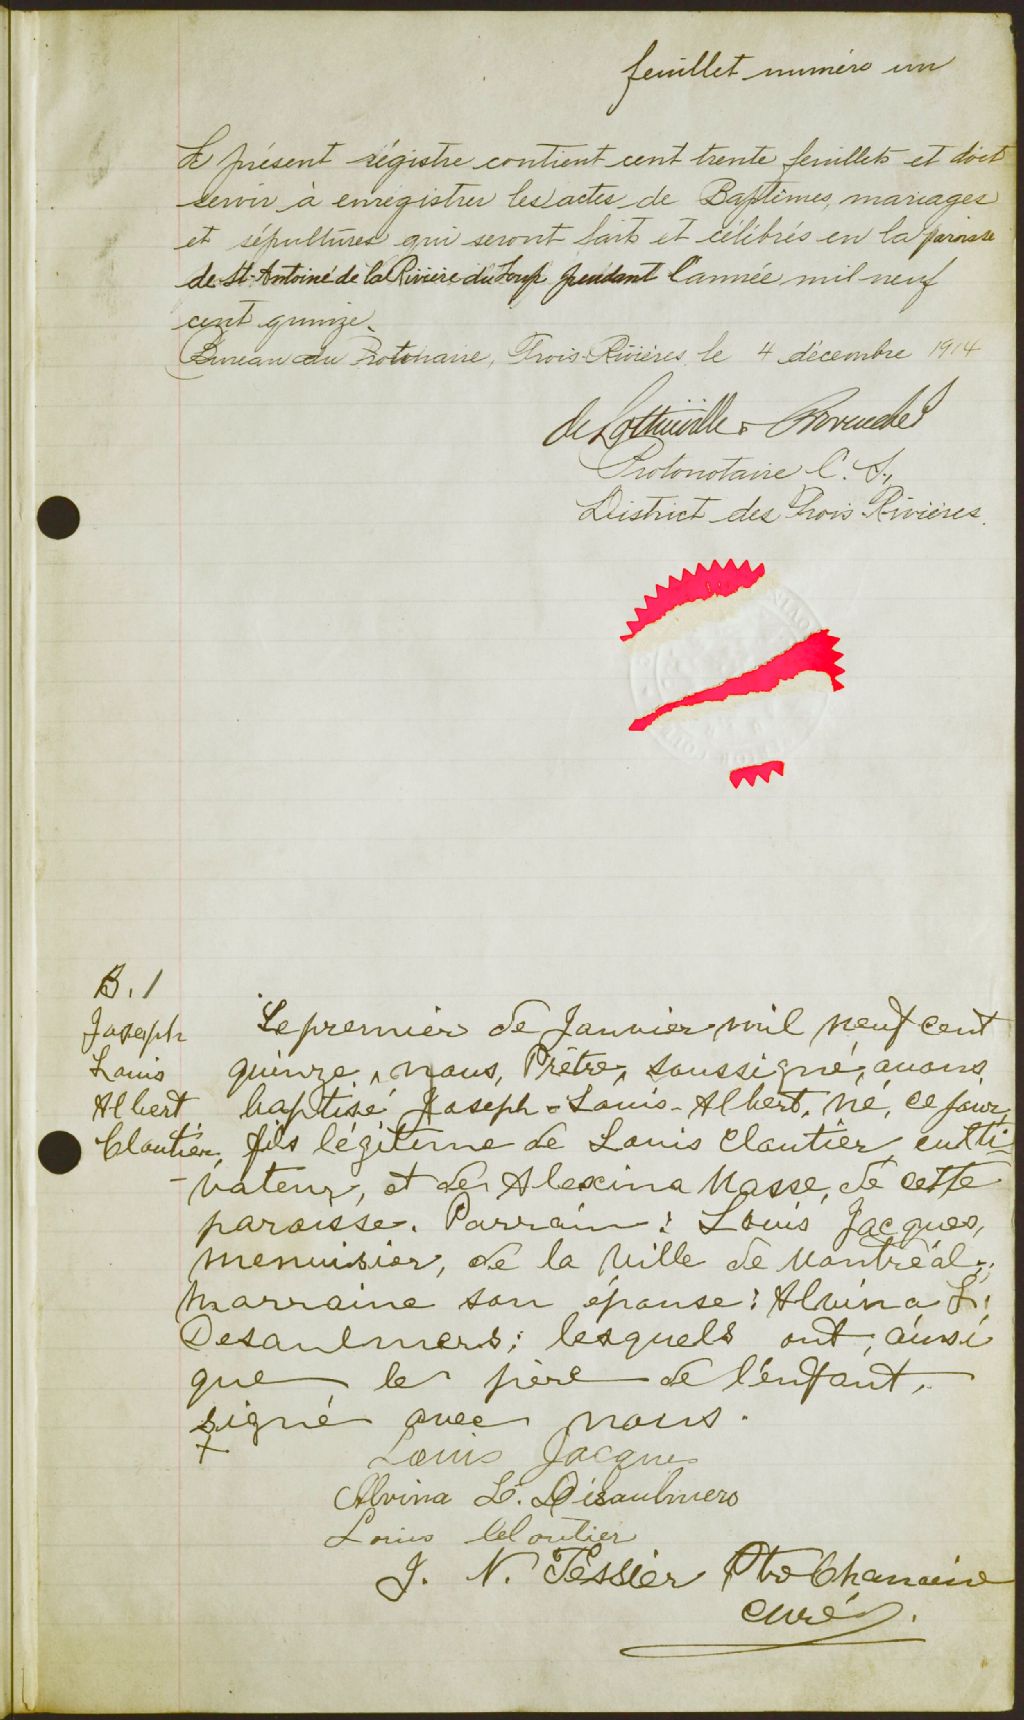 feuillet numéro un
Le présent régistre contient cent trente feuillets et doit
servir à enregistrer les actes de Baptêmes, mariages
et sépultures qui seront faits et célébrés en la paroisse
de St. Antoine de la Rivière du Loup pendant l'année mil neuf
cent quinze.
Bureau du Protonaire, Trois-Rivières, le 4 décembre 1914
de Lottinville &
Protonotaire C. S.,
District des Trois Rivières.
B. 1
Joseph
Louis
Albert
Cloutier,
Le premier de Janvier mil neuf cent
quinze, nous, Prêtre, soussigné, avons
baptisé Joseph-Louis-Albert, né, ce jour,
fils légitime de Louis Cloutier, culti-
-vateur, et de Alexina Masse, de cette
paroisse. Parrain: Louis Jacques,
menuisier, de la Ville de Montréal;
Marraine son épouse: Alvina L.
Desaulniers; lesquels ont, ainsi
que le père de l'enfant,
signé avec nous.
+
Louis Jacques
Alvina L. Désaulniers
Louis Cloutier
J. N. Tessier Ptre Chanoine
curé.